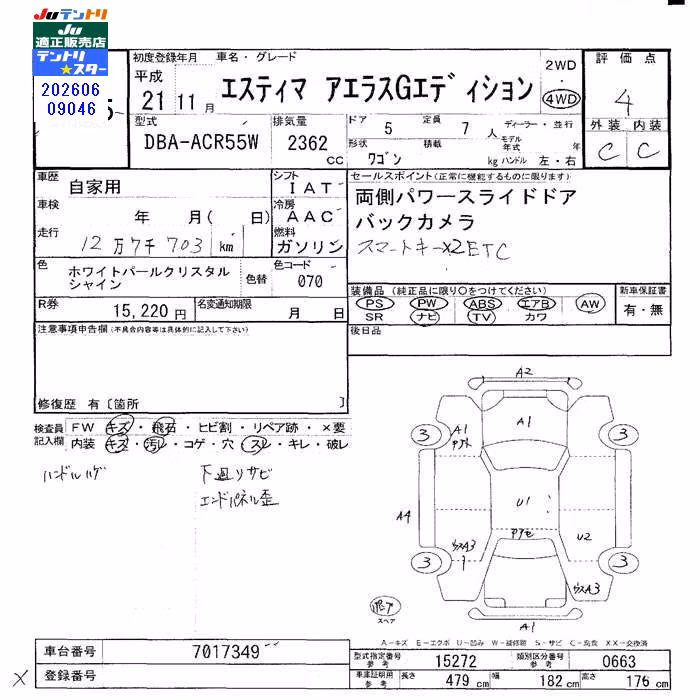 JUテントリ
JU
適正販売店
テントリ
★スター
202606
09046
5
初度登録年月
平成
21 11月
車名・グレード
エスティマ アエラスGエディション
2WD
・
4WD
評価点
4
外装 内装
C C
型式
DBA-ACR55W
排気量
2362
CC
ドア 5 定員 7 人
形状 ワゴン 積載 kg
ディーラー・並行
モデル年式 年
ハンドル 左・右
車歴 自家用
車検 年 月( 日)
走行 12万7千703 km
シフト
IAT
冷房
AAC
燃料
ガソリン
色 ホワイトパールクリスタル
シャイン
色替
色コード
070
R券 15,220円
名変通知期限 月 日
セールスポイント(正常に機能するものに限ります)
両側パワースライドドア
バックカメラ
スマートキーx2 ETC
装備品(純正品に限り○をつけてください)
PS PW ABS エアB AW
SR ナビ TV カワ
新車保証書
有・無
後日品
注意事項申告欄(不具合内容等は具体的に記入して下さい)
修復歴 有〔箇所 〕
検査員
記入欄
FW キズ・飛石・ヒビ割・リペア跡・×要
内装 キズ・汚レ・コゲ・穴・スレ・キレ・破レ
ハンドルハゲ
下廻りサビ
エンドパネル歪
A2
3
A1
A1
3
A4
U1
U2
3
3
A1
スペア
A-キズ E-エクボ U-凹み W-補修跡 S-サビ C-腐食 XX-交換済
車台番号 7017349
X
登録番号
型式指定番号
参考
15272
類別区分番号
参考
0663
車庫証明用
参考
長さ 479 cm 幅 182 cm 高さ 176 cm